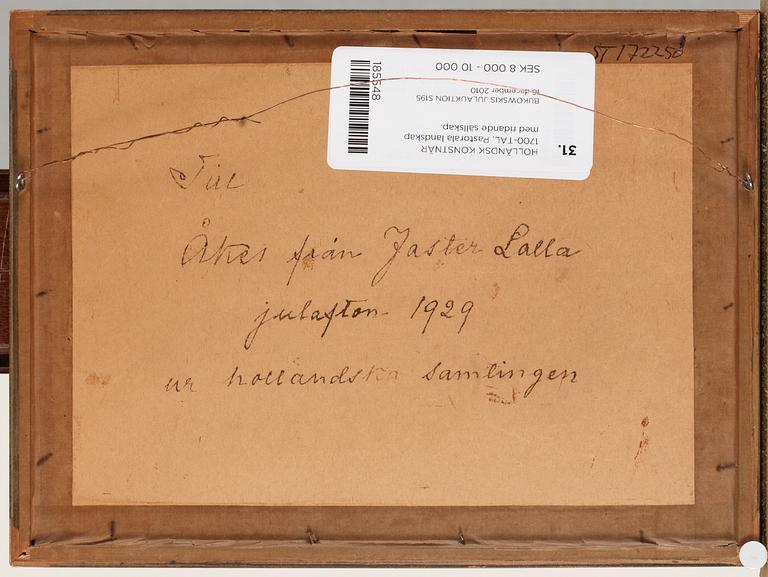 ST172250
31.
HOLLÄNDSK KONSTNÄR
1700-TAL. Pastorala landskap
med ridande sällskap.
BUKOWSKIS JULAUKTION S195
16 december 2010
SEK 8 000 - 10 000
185548
Till
Åkes från Faster Lalla
julafton 1929
ur holländska samlingen